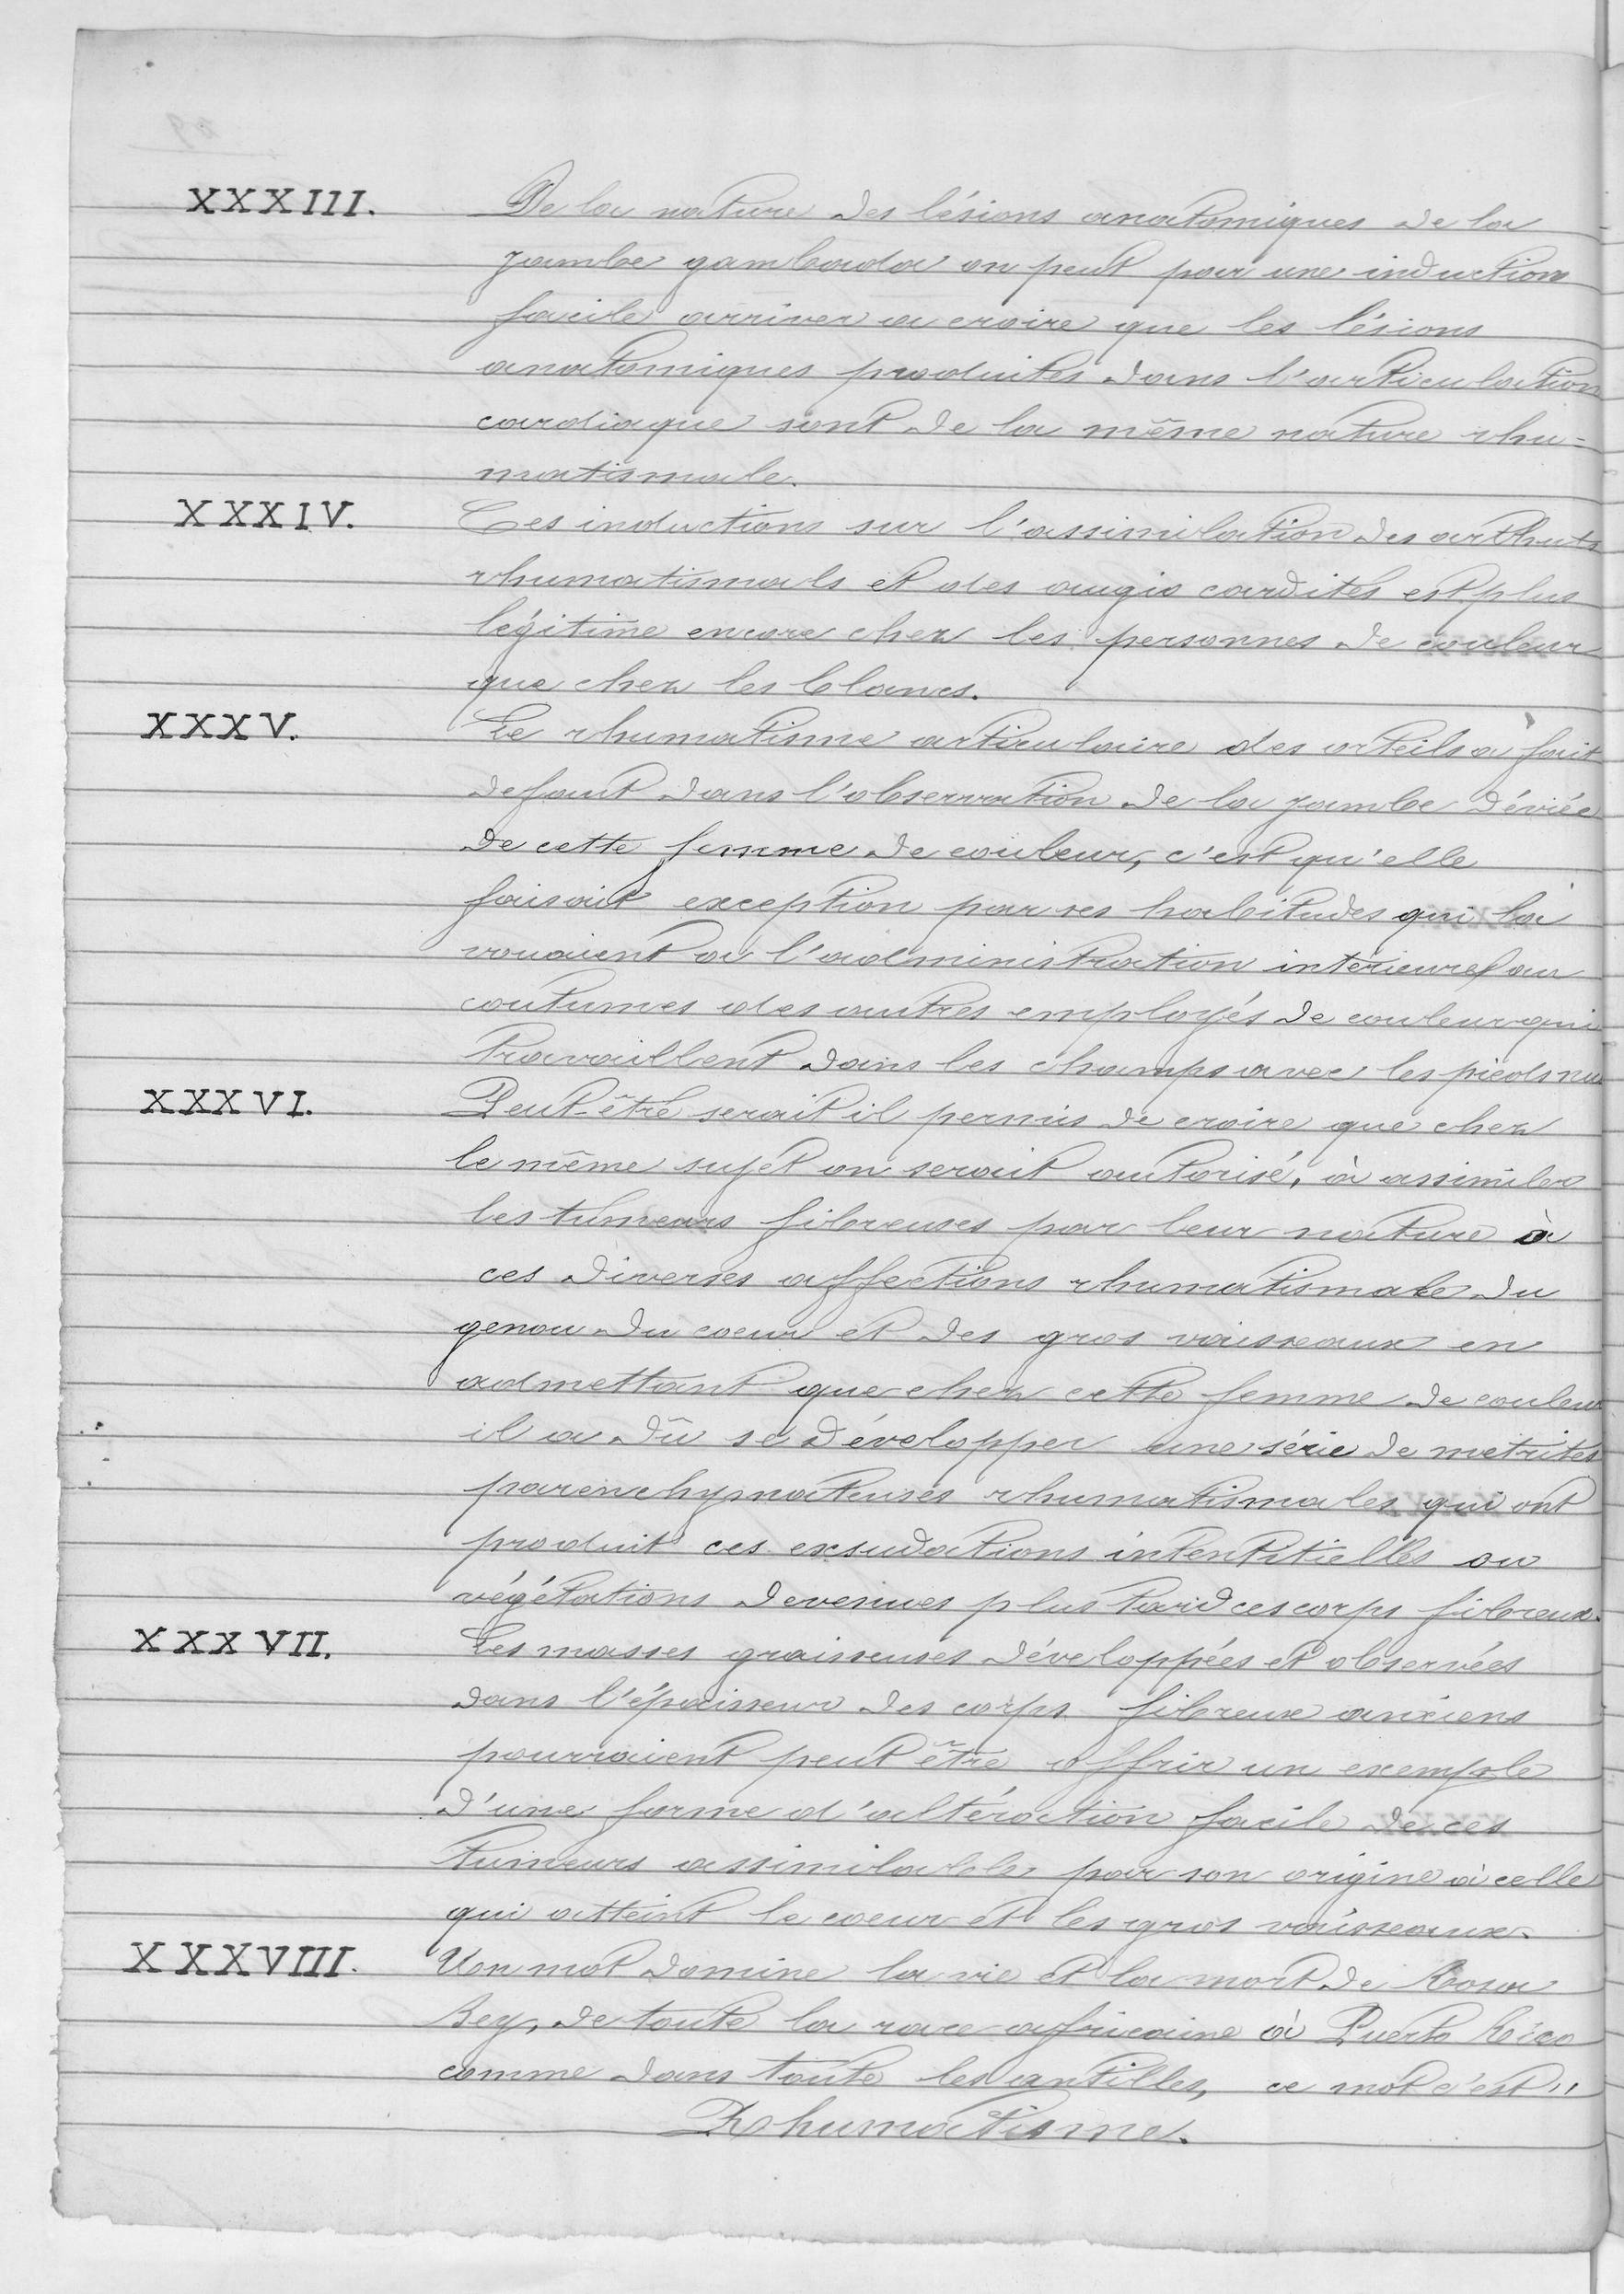 XXXIII. De la nature des lésions anatomiques de la
jambe gambada on peut par une induction
facile arriver a croire que les lésions
anatomiques produites dans l'articulation
cardiaque sont de la même nature rhu-
matismale.
XXXIV. Ces inductions sur l'assimilation des
rhumatismals et des angio cardites est plus
légitime encore chez les personnes de couleur
que chez les blancs.
XXXV. Le rhumatisme articulaire des orteils a fait
defaut dans l'observation de la jambe déviée
de cette femme de couleur, c'est qu'elle
faisait exception par ses habitudes qui la
vouaient a l'administration intérieure au
coutumes des autres employés de couleur qui
travaillent dans les champs avec les pieds nu
XXXVI. Peut-être serait il permis de croire que chez
le même sujet on serait autorisé, à assimiler
les tumeurs fibreuses par leur nature à
ces diverses affections rhumatismale du
genou du coeur et des gros vaisseaux en
admettant que chez cette femme de couleur
il a dû se développer une série de metrites
parenchymateuses rhumatismales qui ont
produit ces exsudations intentitielles ou
végétations devenues plus tard ces corps fibreux.
XXXVII. Les masses graisseuses développées et observées
dans l'épaisseur des corps fibreux anciens
pourraient peut être offrir un exemple
d'une forme d'altération facile de ces
tumeurs assimilable par son origine à celle
qui atteint le coeur et les gros vaisseaux.
XXXVIII. Un mot domine la vie et la mort de Rosa
Bey, de toute la race africaine à Puerto Rico
comme dans toute les antilles, ce mot c'est "
Rhumatisme.